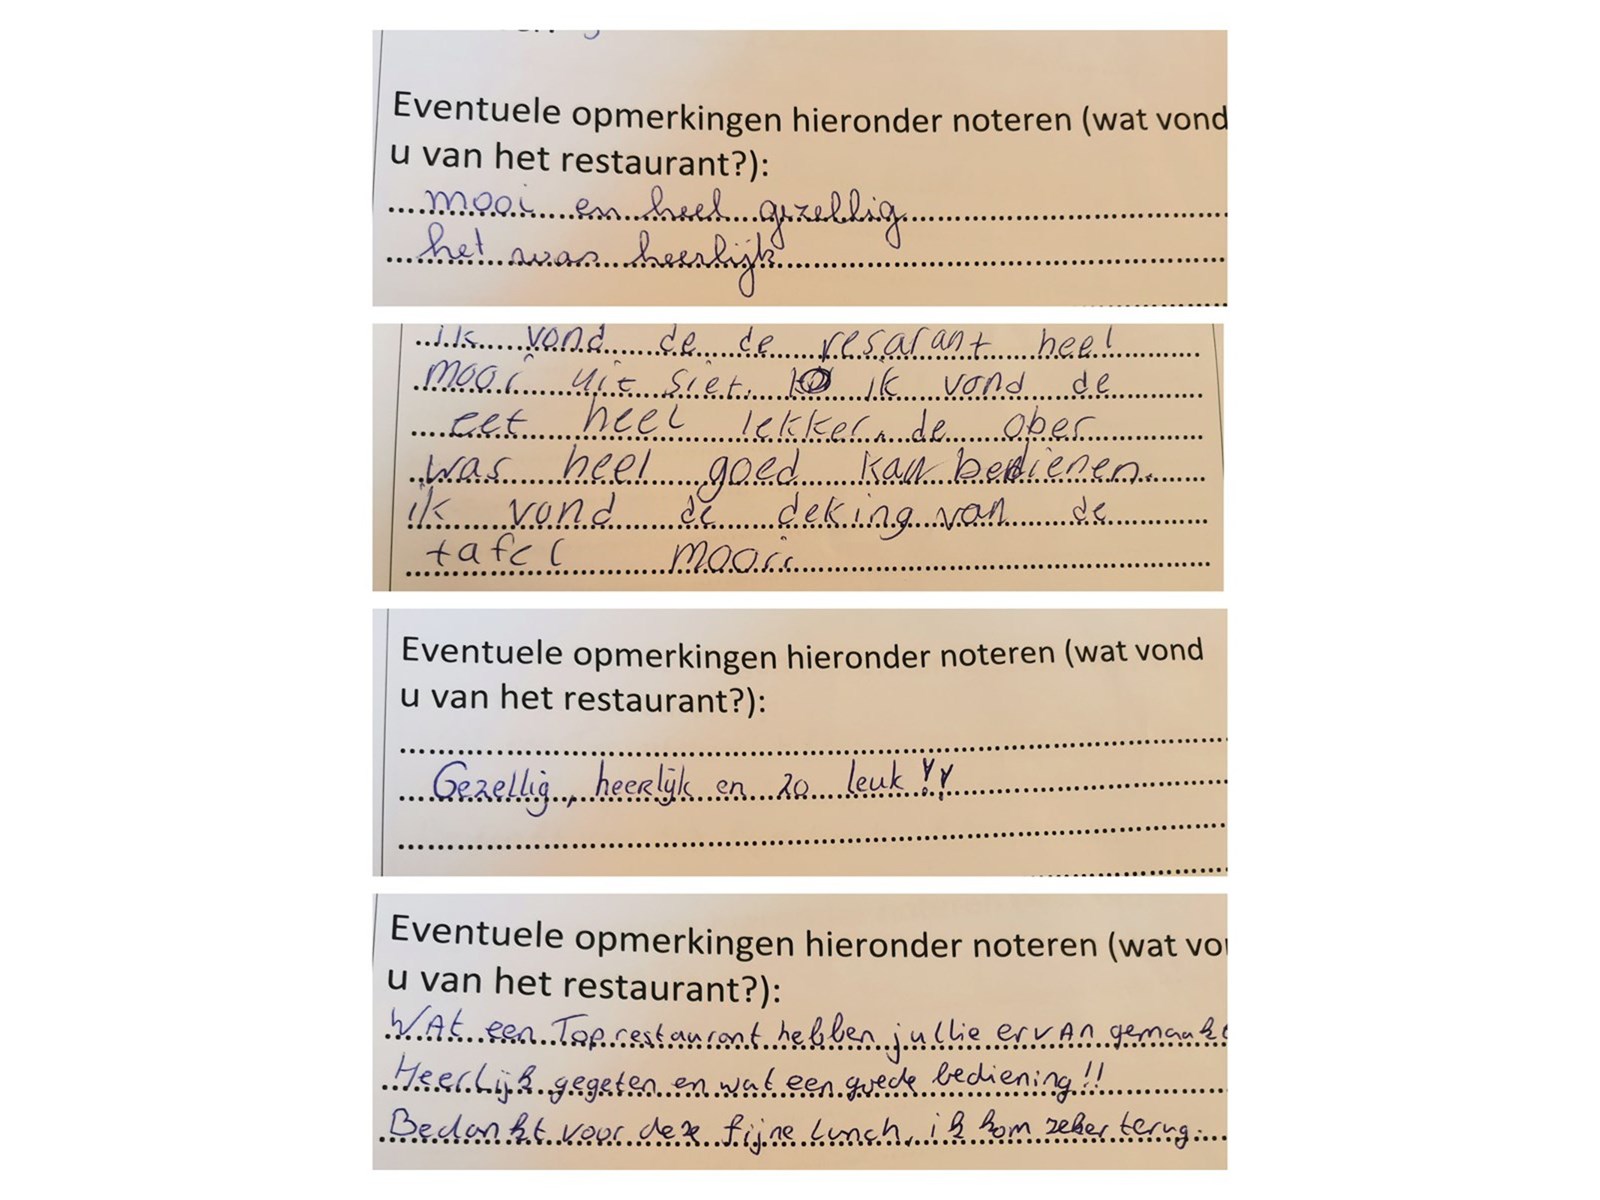 Eventuele opmerkingen hieronder noteren (wat vond
u van het restaurant?):
mooi en heel gezellig
het was heerlijk
ik vond de de resarant heel
mooi uit siet. ik vond de
eet heel lekker. de ober
was heel goed kan bedienen.
ik vond de deking van de
tafel mooi
Eventuele opmerkingen hieronder noteren (wat vond
u van het restaurant?):
Gezellig, heerlijk en zo leuk!!
Eventuele opmerkingen hieronder noteren (wat vo
u van het restaurant?):
WAt een Top restaurant hebben jullie er vAn gemaakt
HeerLijk gegeten en wat een goede bediening!!
Bedankt voor deze fijne lunch, ik kom zeker terug.